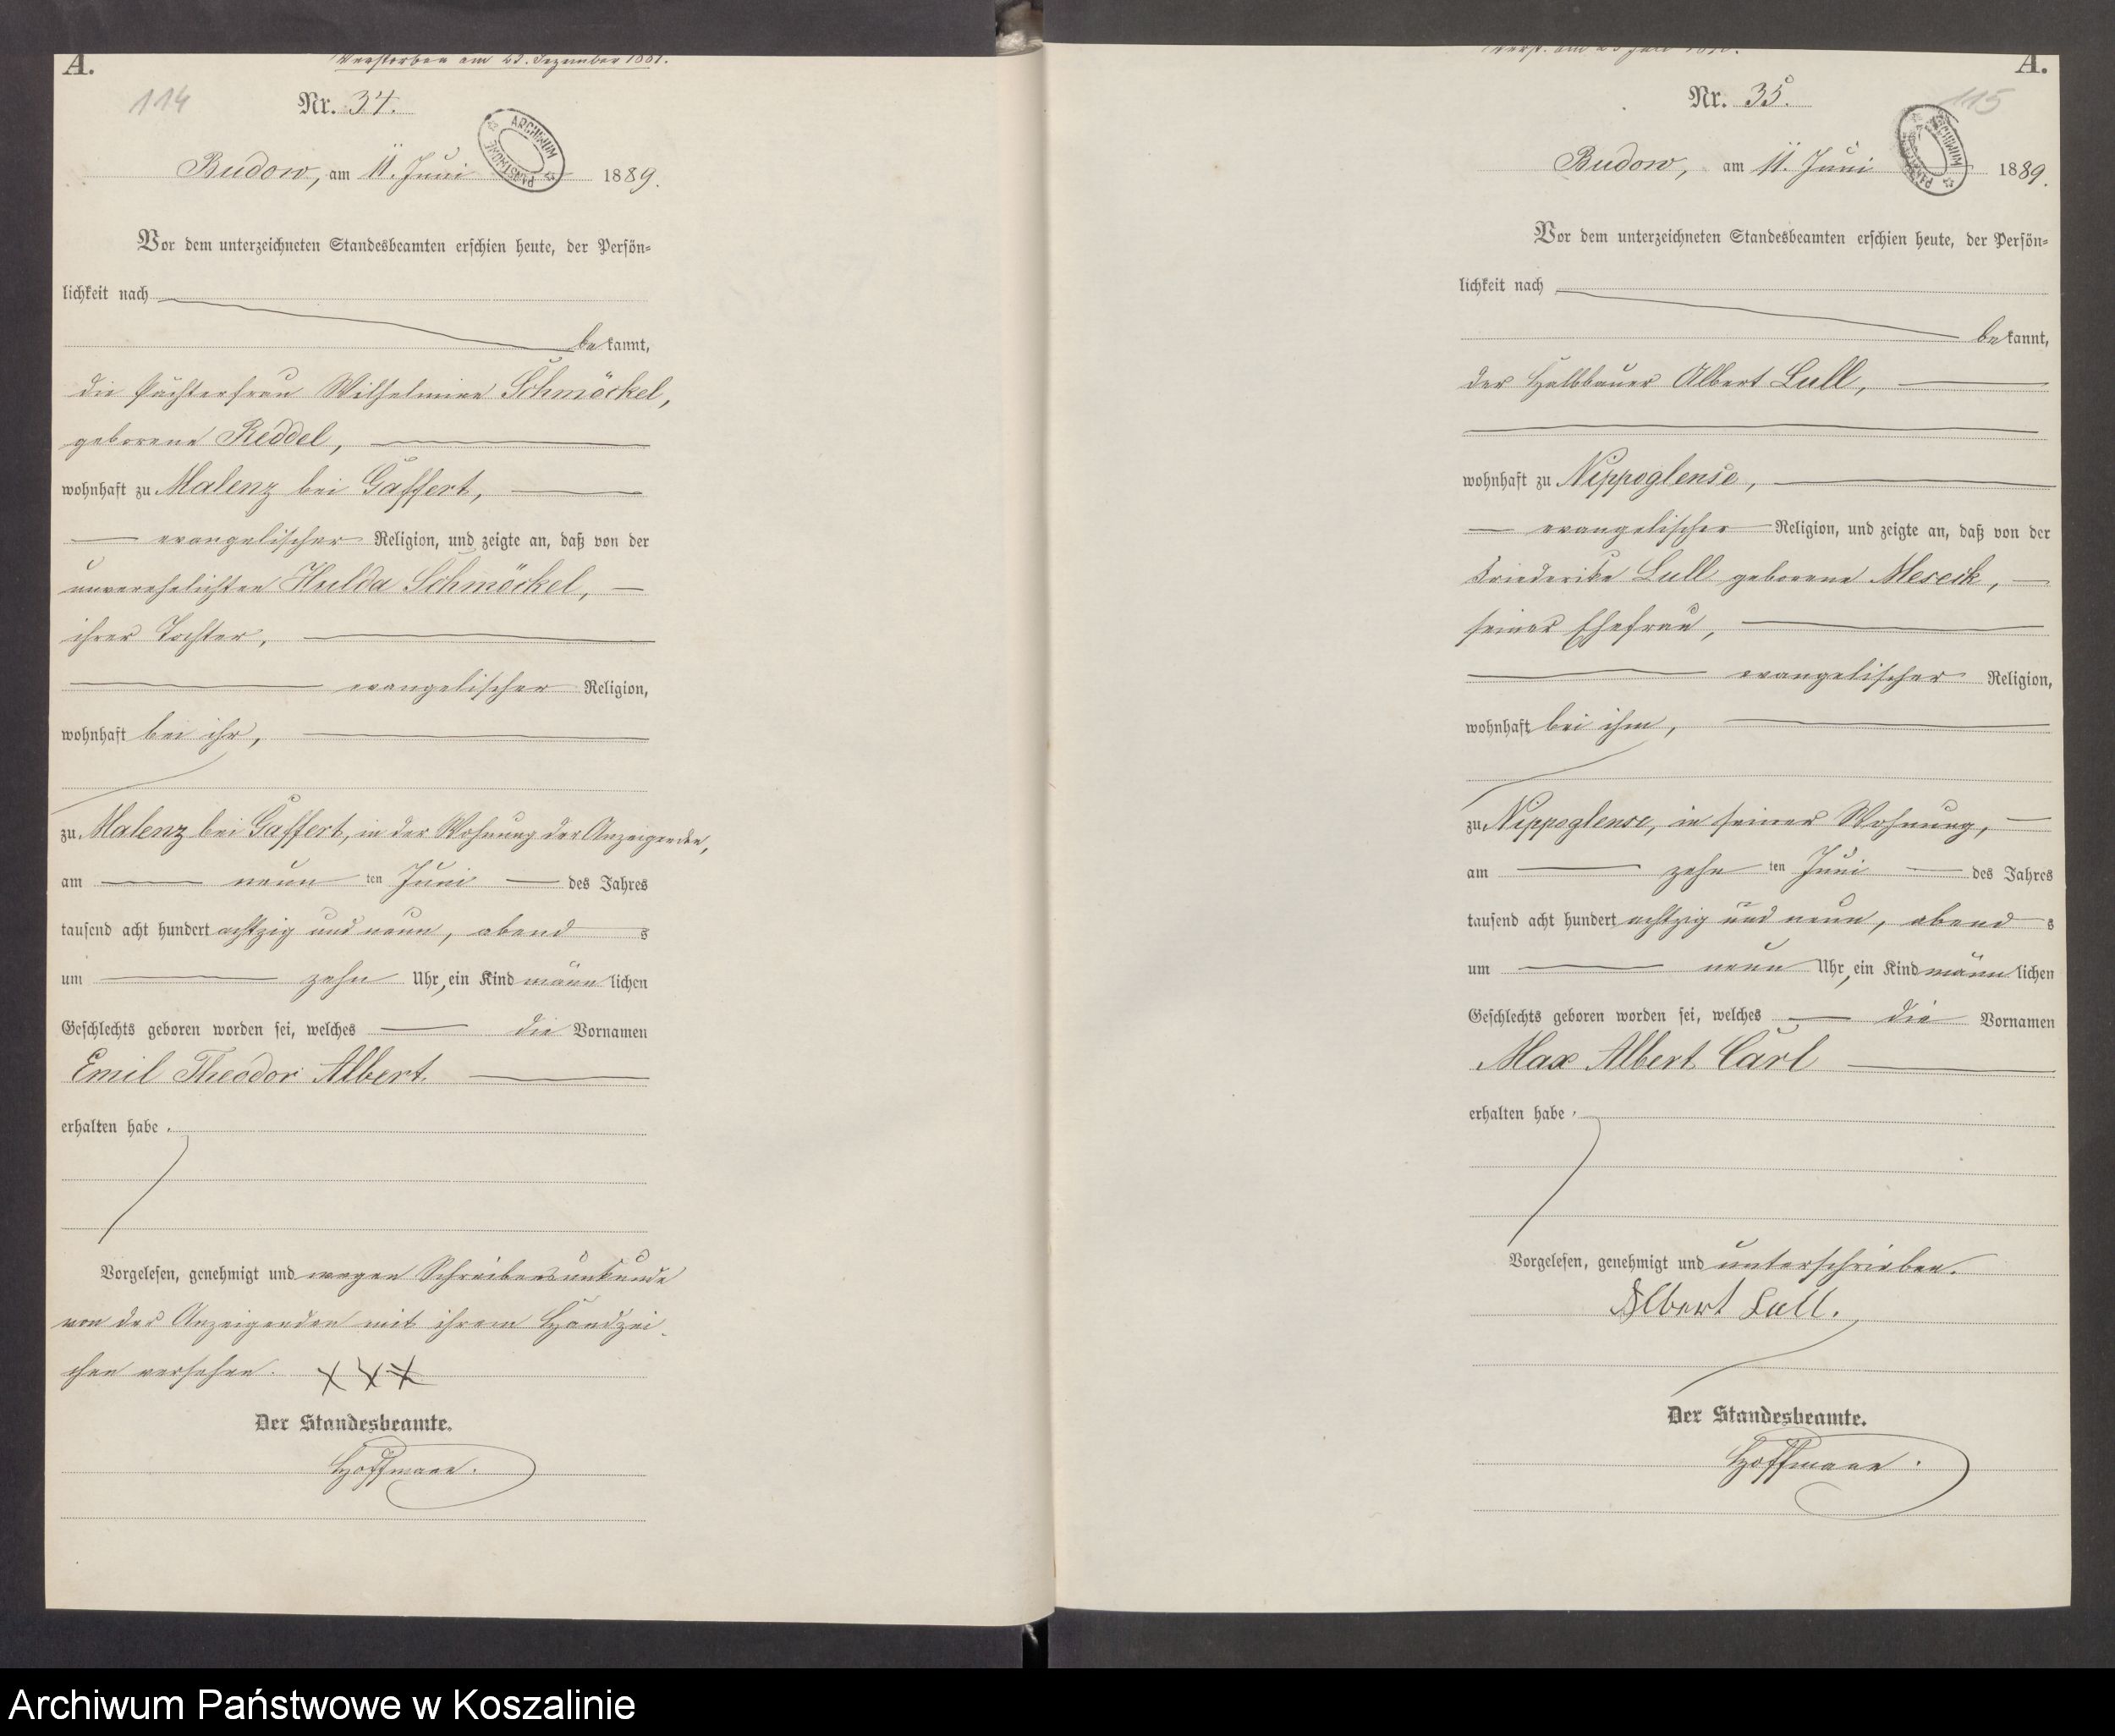 A.
Verstorben am 23. Dezember
114
Nr. 34.
ARCHIWUM PAŃSTWOWE
Budow, am 11. Juni 1889.
Vor dem unterzeichneten Standesbeamten erschien heute, der Persön-
lichkeit nach
bekannt,
die Pächterfrau Wilhelmine Schmöckel,
geborene Reddel,
wohnhaft zu Malenz bei Gaffert,
evangelischer Religion, und zeigte an, daß von der
unverehelichten Hulda Schmöckel,
ihrer Tochter,
evangelischer Religion,
wohnhaft bei ihr,
zu Malenz bei Gaffert, in der Wohnung der Anzeigenden,
am neun ten Juni des Jahres
tausend acht hundert achtzig und neun, abends
um zehn Uhr, ein Kind männlichen
Geschlechts geboren worden sei, welches die Vornamen
Emil Theodor Albert
erhalten habe.
Vorgelesen, genehmigt und wegen Schreibensunkunde
von der Anzeigenden mit ihrem Handzei-
chen versehen. XXX
Der Standesbeamte.
Hoffmann.
A.
Verst. am
115
Nr. 35.
ARCHIWUM PAŃSTWOWE
Budow, am 11. Juni 1889.
Vor dem unterzeichneten Standesbeamten erschien heute, der Persön-
lichkeit nach
bekannt,
der Halbbauer Albert Lull,
wohnhaft zu Nippoglense,
evangelischer Religion, und zeigte an, daß von der
Friederike Lull geborene Meseck,
seiner Ehefrau,
evangelischer Religion,
wohnhaft bei ihm,
zu Nippoglense, in seiner Wohnung,
am zehn ten Juni des Jahres
tausend acht hundert achtzig und neun, abends
um neun Uhr, ein Kind männlichen
Geschlechts geboren worden sei, welches die Vornamen
Max Albert Carl
erhalten habe.
Vorgelesen, genehmigt und unterschrieben.
Albert Lull.
Der Standesbeamte.
Hoffmann.
Archiwum Państwowe w Koszalinie